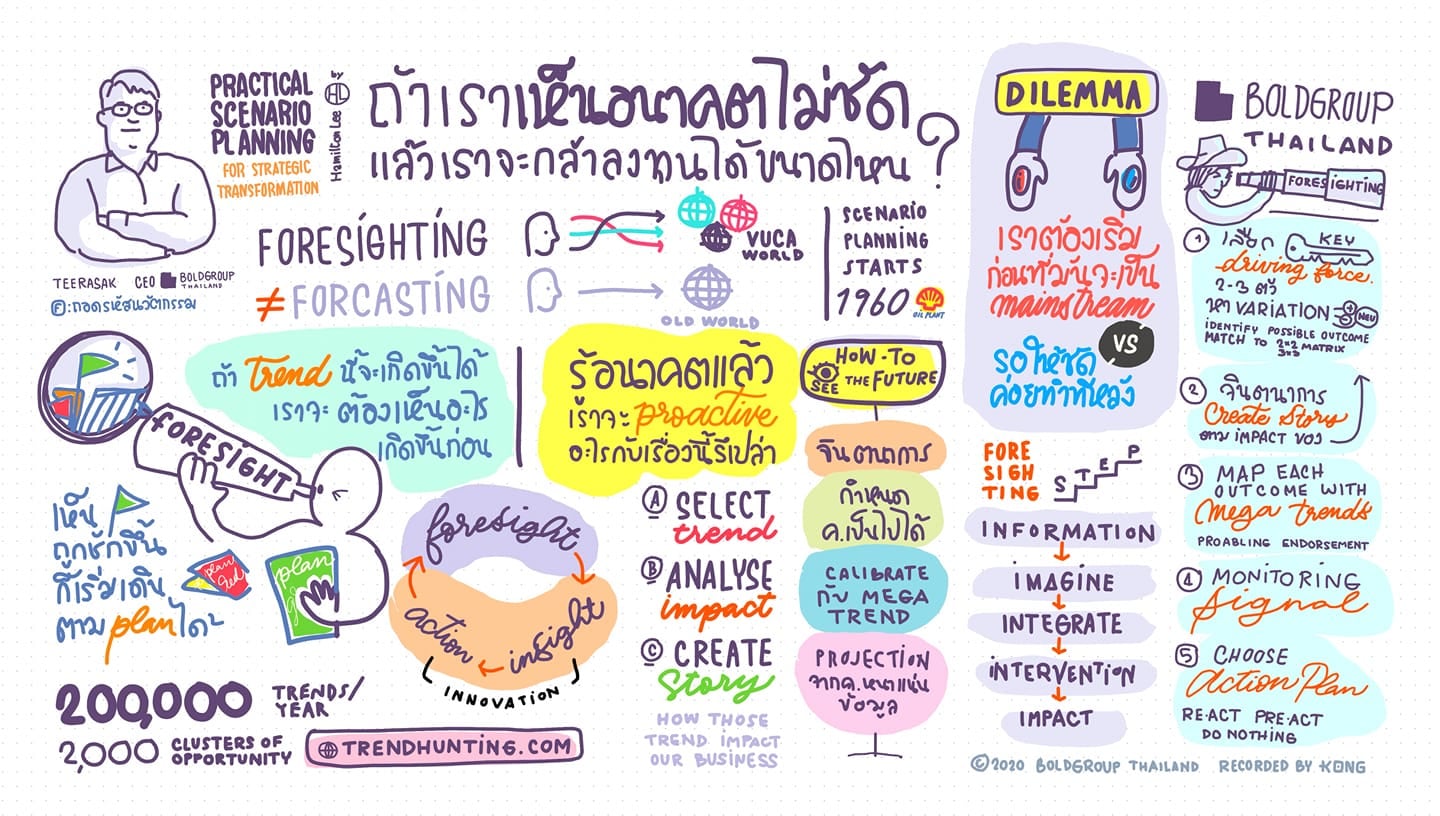 PRACTICAL
SCENARIO
PLANNING
FOR STRATEGIC
TRANSFORMATION
by HL Hamilton Lee
TEERASAK CEO BOLDGROUP
THAILAND
ⓕ:ถอดรหัสนวัตกรรม
ถ้าเราเห็นอนาคตไม่ชัด
แล้วเราจะกล้าลงทุนได้ขนาดไหน?
FORESIGHTING
≠FORCASTING
VUCA
WORLD
OLD WORLD
SCENARIO
PLANNING
STARTS
1960
OIL PLANT
DILEMMA
เราต้องเริ่ม
ก่อนที่มันจะเป็น
mainstream
VS
รอให้ชัด
ค่อยทำทีหลัง
BOLDGROUP
THAILAND
FORESIGHTING
FORESIGHT
ถ้า Trend นี้จะเกิดขึ้นได้
เราจะ ต้องเห็นอะไร
เกิดขึ้นก่อน
รู้อนาคตแล้ว
เราจะ proactive
อะไรกับเรื่องนี้รึเปล่า
HOW-TO
SEE THE FUTURE
จินตนาการ
กำหนด
ค.เป็นไปได้
CALIBRATE
กับ MEGA
TREND
PROJECTION
จากค.หนาแน่น
ข้อมูล
เห็น
ถูกชักขึ้น
ก็เริ่มเดิน
ตาม plan ได้
plan
foresight
insight
action
INNOVATION
200,000 TRENDS/
YEAR
2,000 CLUSTERS OF
OPPORTUNITY
TRENDHUNTING.COM
Ⓐ SELECT
trend
Ⓑ ANALYSE
impact
Ⓒ CREATE
Story
HOW THOSE
TREND IMPACT
OUR BUSINESS
FORE
SIGH
TING
STEP
INFORMATION
IMAGINE
INTEGRATE
INTERVENTION
IMPACT
① เลือก KEY
driving force.
2-3 ตัว
หา VARIATION NEU
IDENTIFY POSSIBLE OUTCOME
MATCH TO 2×2 MATRIX
3×3
② จินตนาการ
Create Story
ตาม IMPACT ของ
③ MAP EACH
OUTCOME WITH
Mega trends
PROABLING ENDORSEMENT
④ MONITORING
Signal
⑤ CHOOSE
Action Plan
RE-ACT PRE-ACT
DO NOTHING
©2020 BOLDGROUP THAILAND RECORDED BY KONG